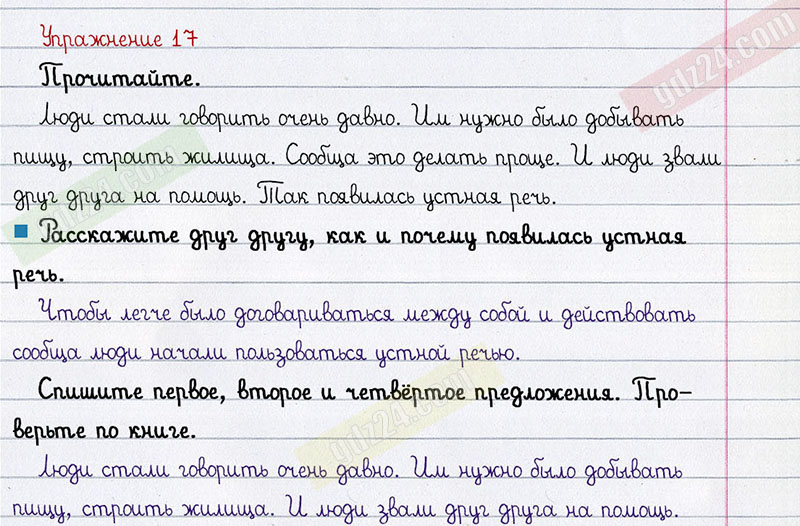 Упражнение 17
Прочитайте.
Люди стали говорить очень давно. Им нужно было добывать
пищу, строить жилища. Сообща это делать проще. И люди звали
друг друга на помощь. Так появилась устная речь.
Расскажите друг другу, как и почему появилась устная
речь.
Чтобы легче было договариваться между собой и действовать
сообща люди начали пользоваться устной речью.
Спишите первое, второе и четвёртое предложения. Про-
верьте по книге.
Люди стали говорить очень давно. Им нужно было добывать
пищу, строить жилища. И люди звали друг друга на помощь.
gdz24.com
gdz24.com
gdz24.com